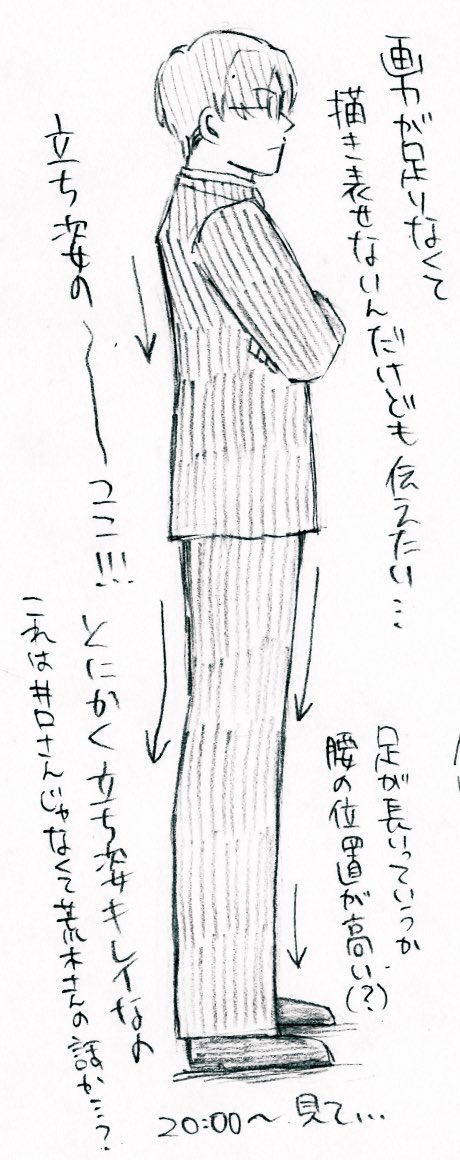 画力が足りなくて
描き表せないんだけども伝えたい…
立ち姿の
ココ!!!
足が長いっていうか
腰の位置が高い(?)
とにかく立ち姿キレイなの
これは井口さんじゃなくて荒木さんの話か…?
20:00〜見て…